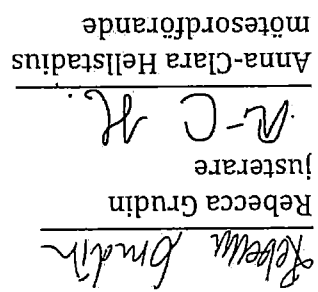 Rebecca Grudin
Rebecca Grudin
justerare
A-C H.
Anna-Clara Hellstadius
mötesordförande